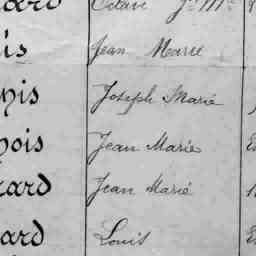 ard Octave Jn Mie
is Jean Marie
nis Joseph Marie
nois Jean Marie E
rard Jean Marié
ard Louis E